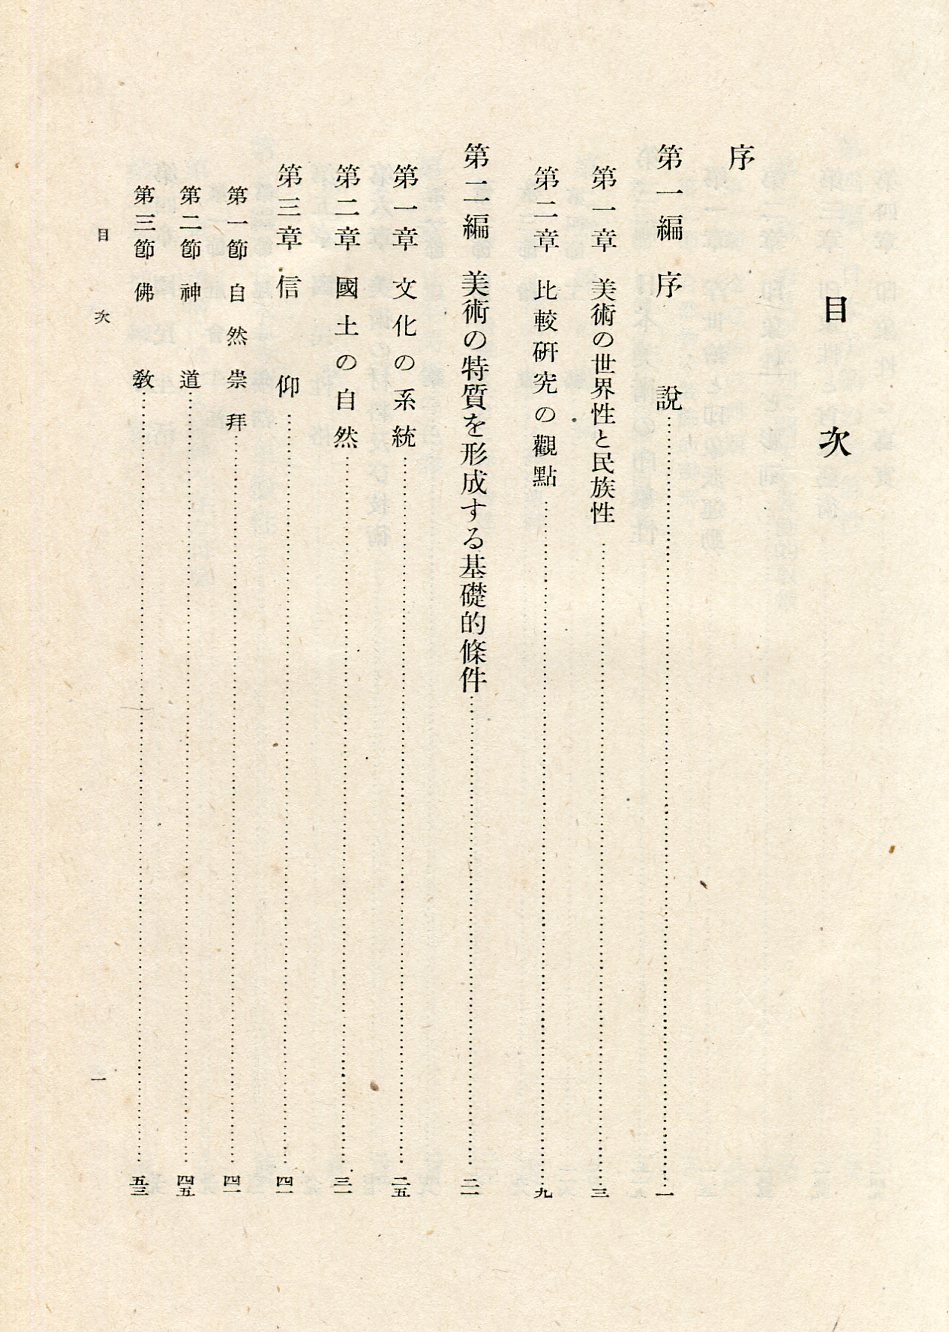 目次
序
第一編 序說……一
第一章 美術の世界性と民族性……三
第二章 比較硏究の觀點……九
第二編 美術の特質を形成する基礎的條件……二一
第一章 文化の系統……二五
第二章 國土の自然……三一
第三章 信仰……四一
第一節 自然崇拜……四一
第二節 神道……四五
第三節 佛敎……五三
目次 一